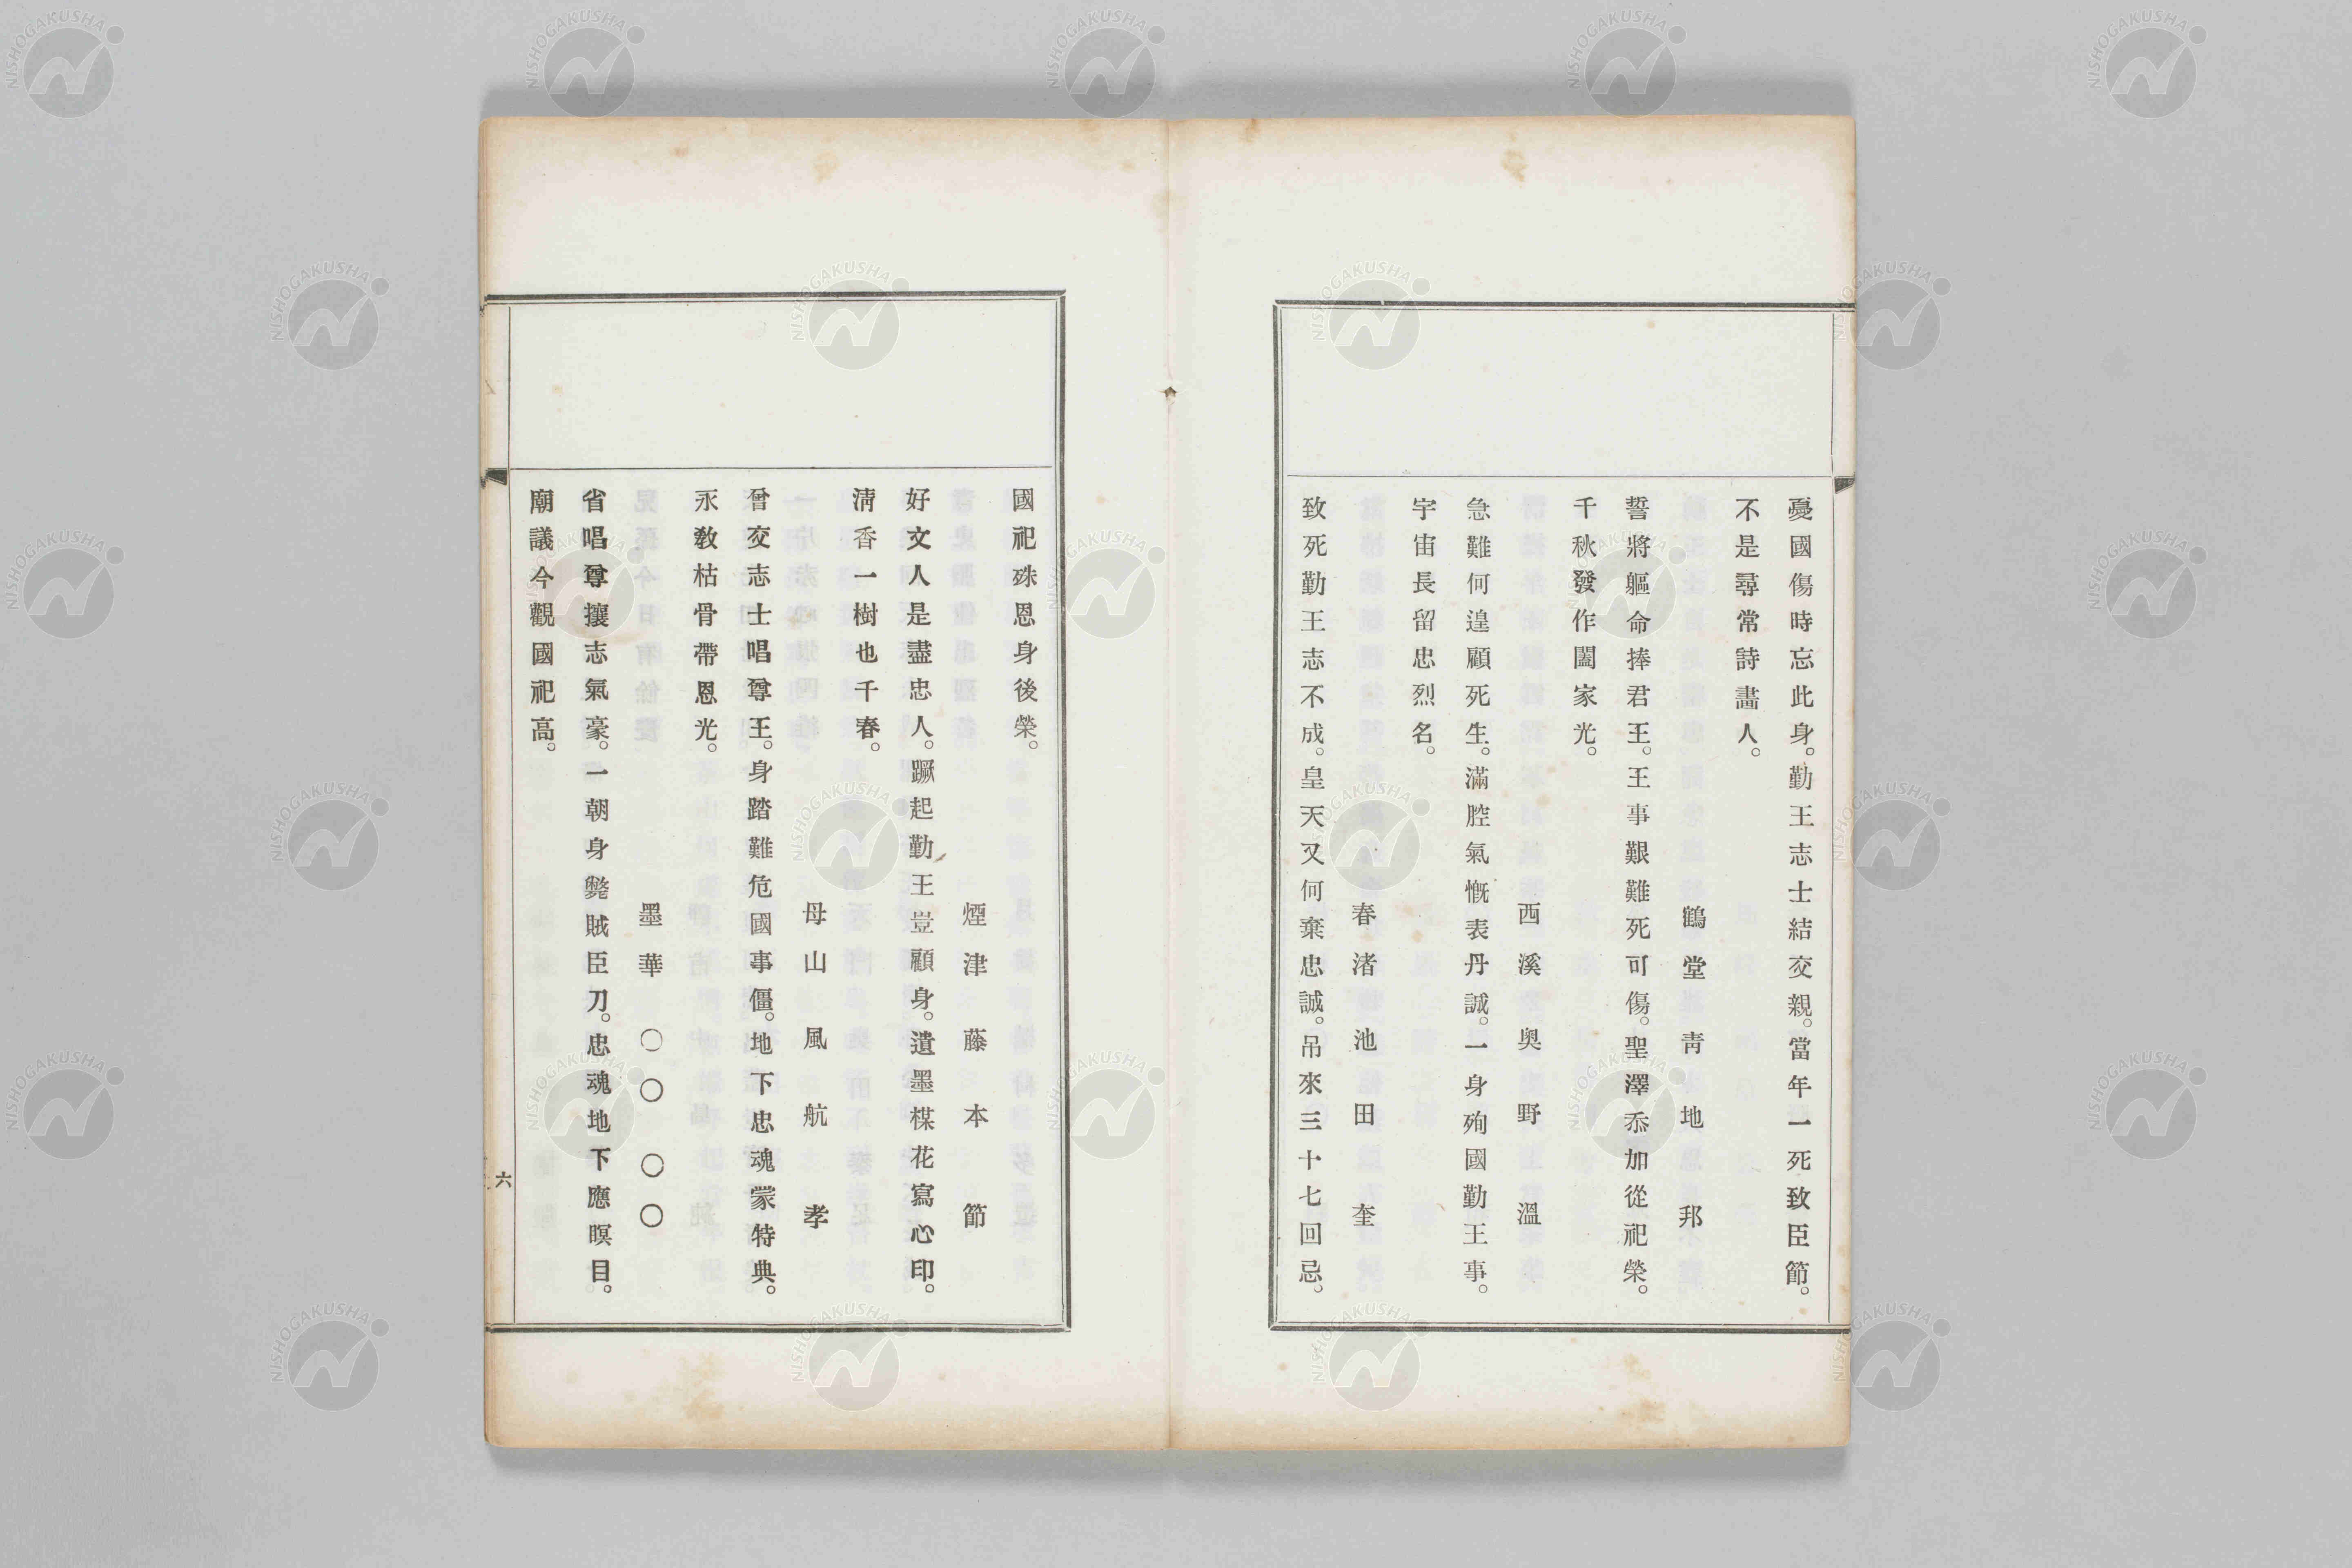 憂國傷時忘此身。勤王志士結交親。當年一死致臣節。
不是尋常詩畵人。
鶴堂 靑地 邦
誓將軀命捧君王。王事艱難死可傷。聖澤忝加從祀榮。
千秋發作闔家光。
西溪 奧野 溫
急難何遑顧死生。滿腔氣慨表丹誠。一身殉國勤王事。
宇宙長留忠烈名。
春渚 池田 奎
致死勤王志不成。皇天又何棄忠誠。吊來三十七回忌。
國祀殊恩身後榮。
煙津 藤本 節
好文人是盡忠人。蹶起勤王豈顧身。遺墨楳花寫心印。
淸香一樹也千春。
母山 風航 孝
曾交志士唱尊王。身踏難危國事僵。地下忠魂蒙特典。
永敎枯骨帶恩光。
墨華 〇〇 〇〇
省唱尊攘志氣豪。一朝身斃賊臣刀。忠魂地下應瞑目。
廟議今觀國祀高。
六
NISHOGAKUSHA